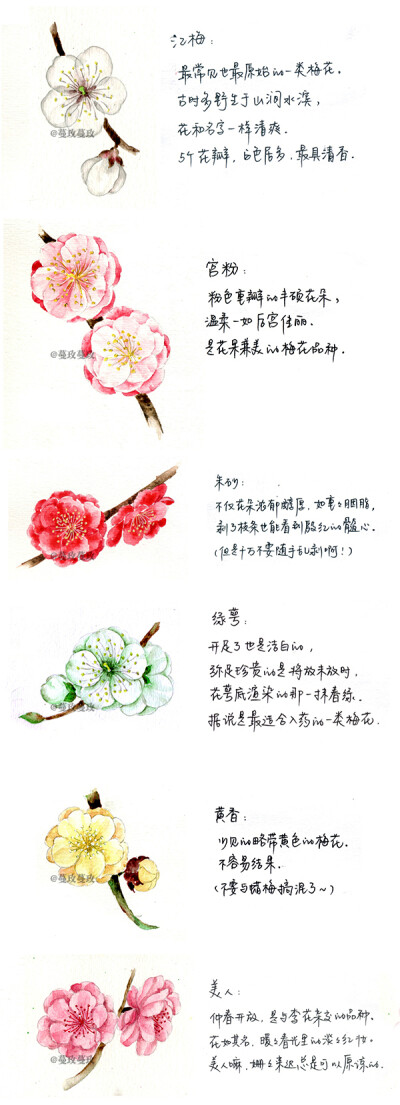 江梅：
最常见也最原始的一类梅花。
古时多野生于山涧水溪，
花和名字一样清爽。
5个花瓣，白色居多，最具清香。
@蔓玫蔓玫
宫粉：
粉色重瓣的丰硕花朵，
温柔一如后宫佳丽。
是花果兼美的梅花品种。
@蔓玫蔓玫
朱砂：
不仅花朵浓郁醲厚，如重重胭脂，
剥了枝条也能看到殷红的髓心。
(但是千万不要随手乱剥啊！)
@蔓玫蔓玫
绿萼：
开足了也是洁白的，
弥足珍贵的是将放未放时，
在萼底渲染的那一抹春绿。
据说是最适合入药的一类梅花。
@蔓玫蔓玫
黄香：
少见的略带黄色的梅花。
不容易结果。
(不要与蜡梅搞混了~)
@蔓玫蔓玫
美人：
仲春开放，是与李花杂交的品种。
花如其名，暖暖春光里的淡淡红妆。
美人嘛，姗姗来迟总是可以原谅的。
@蔓玫蔓玫